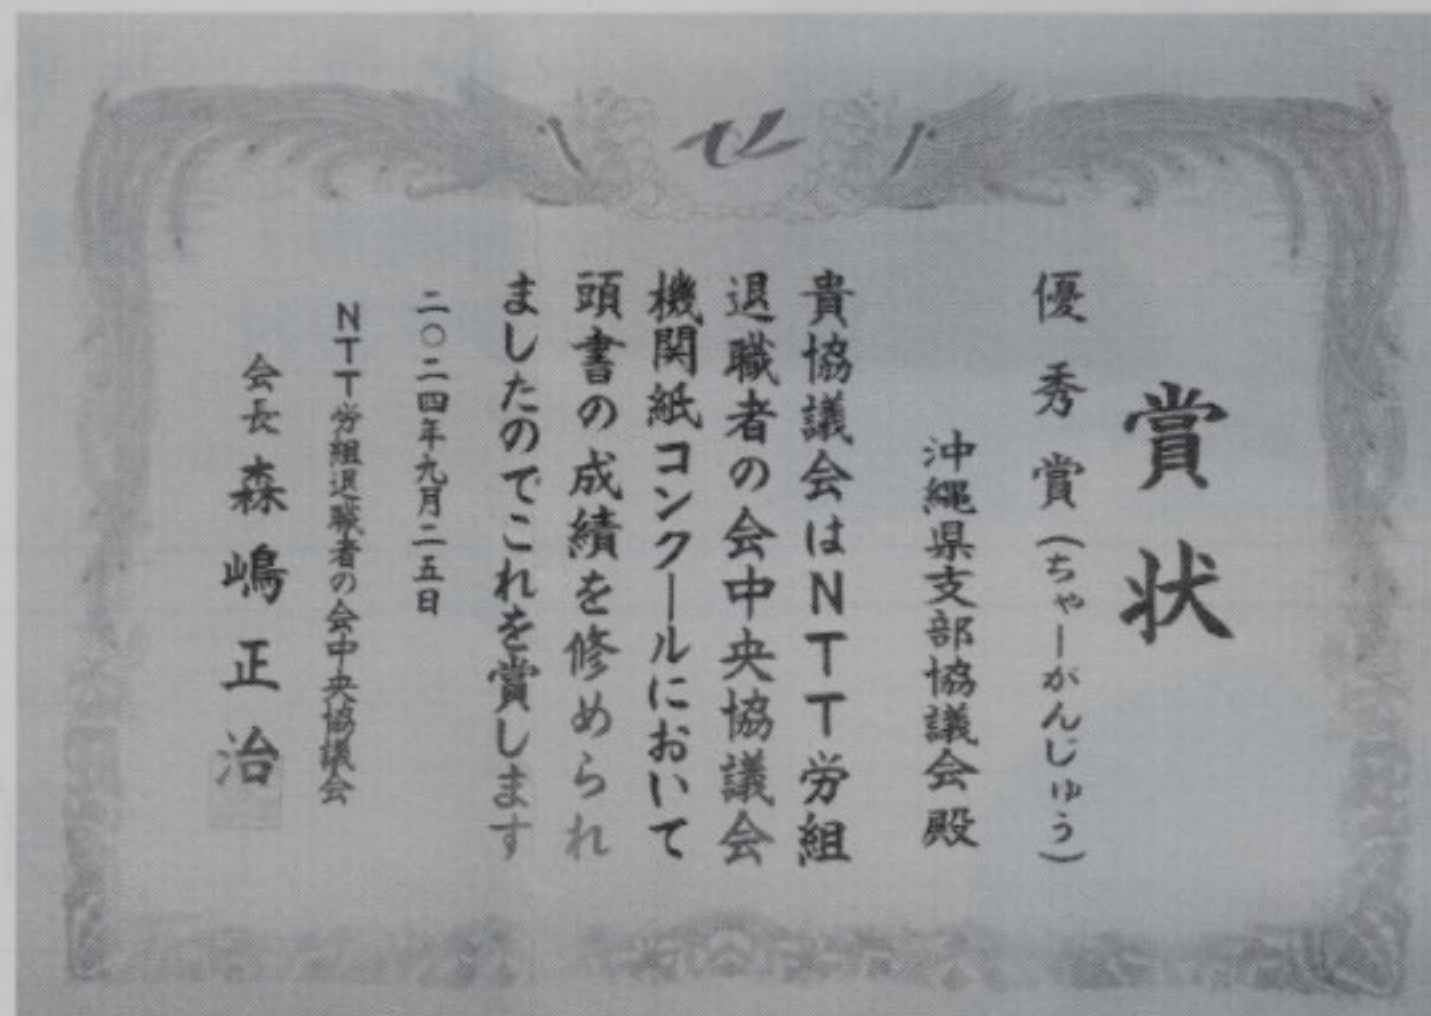 賞状
優秀賞(ちゃーがんじゅう)
沖縄県支部協議会殿
貴協議会はNTT労組
退職者の会中央協議会
機関紙コンクールにおいて
頭書の成績を修められ
ましたのでこれを賞します
二〇二四年九月二五日
NTT労組退職者の会中央協議会
会長 森嶋正治